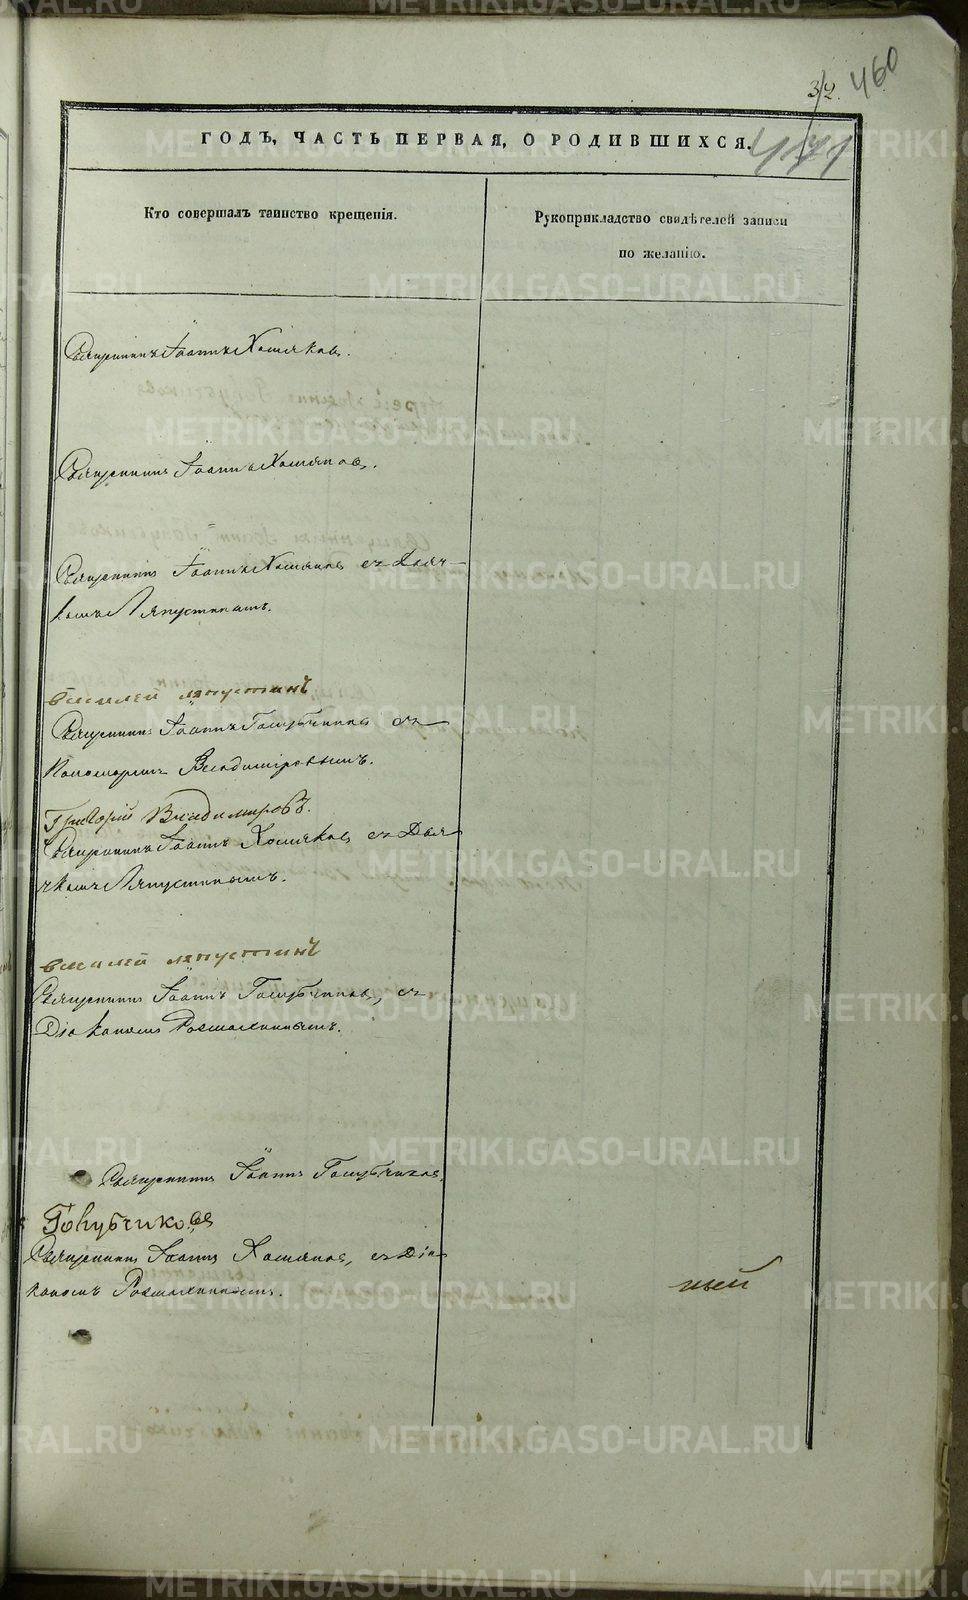 32. 460
ГОДЪ, ЧАСТЬ ПЕРВАЯ, О РОДИВШИХСЯ.
471
Кто совершалъ таинство крещенія.
Рукоприкладство свидѣтелей записи
по желанію.
Священникъ Іоаннъ Хомяковъ.
Священникъ Іоаннъ Хомяковъ.
Священникъ Іоаннъ Хомяковъ съ Дьяч-
комъ Ляпустинымъ.
Василей Ляпустинъ
Священникъ Іоаннъ Голубчиковъ съ
Пономаремъ Владиміровымъ.
Григорій Владимировъ.
Священникъ Іоаннъ Хомяковъ съ Дья-
чкомъ Ляпустинымъ.
Василей Ляпустинъ
Священникъ Іоаннъ Голубчиковъ, съ
Діакономъ
Священникъ Іоаннъ Голубчиковъ.
Голубчиковъ
Священникъ Іоаннъ Хомяковъ, съ Діа-
кономъ
ный
METRIKI.GASO-URAL.RU